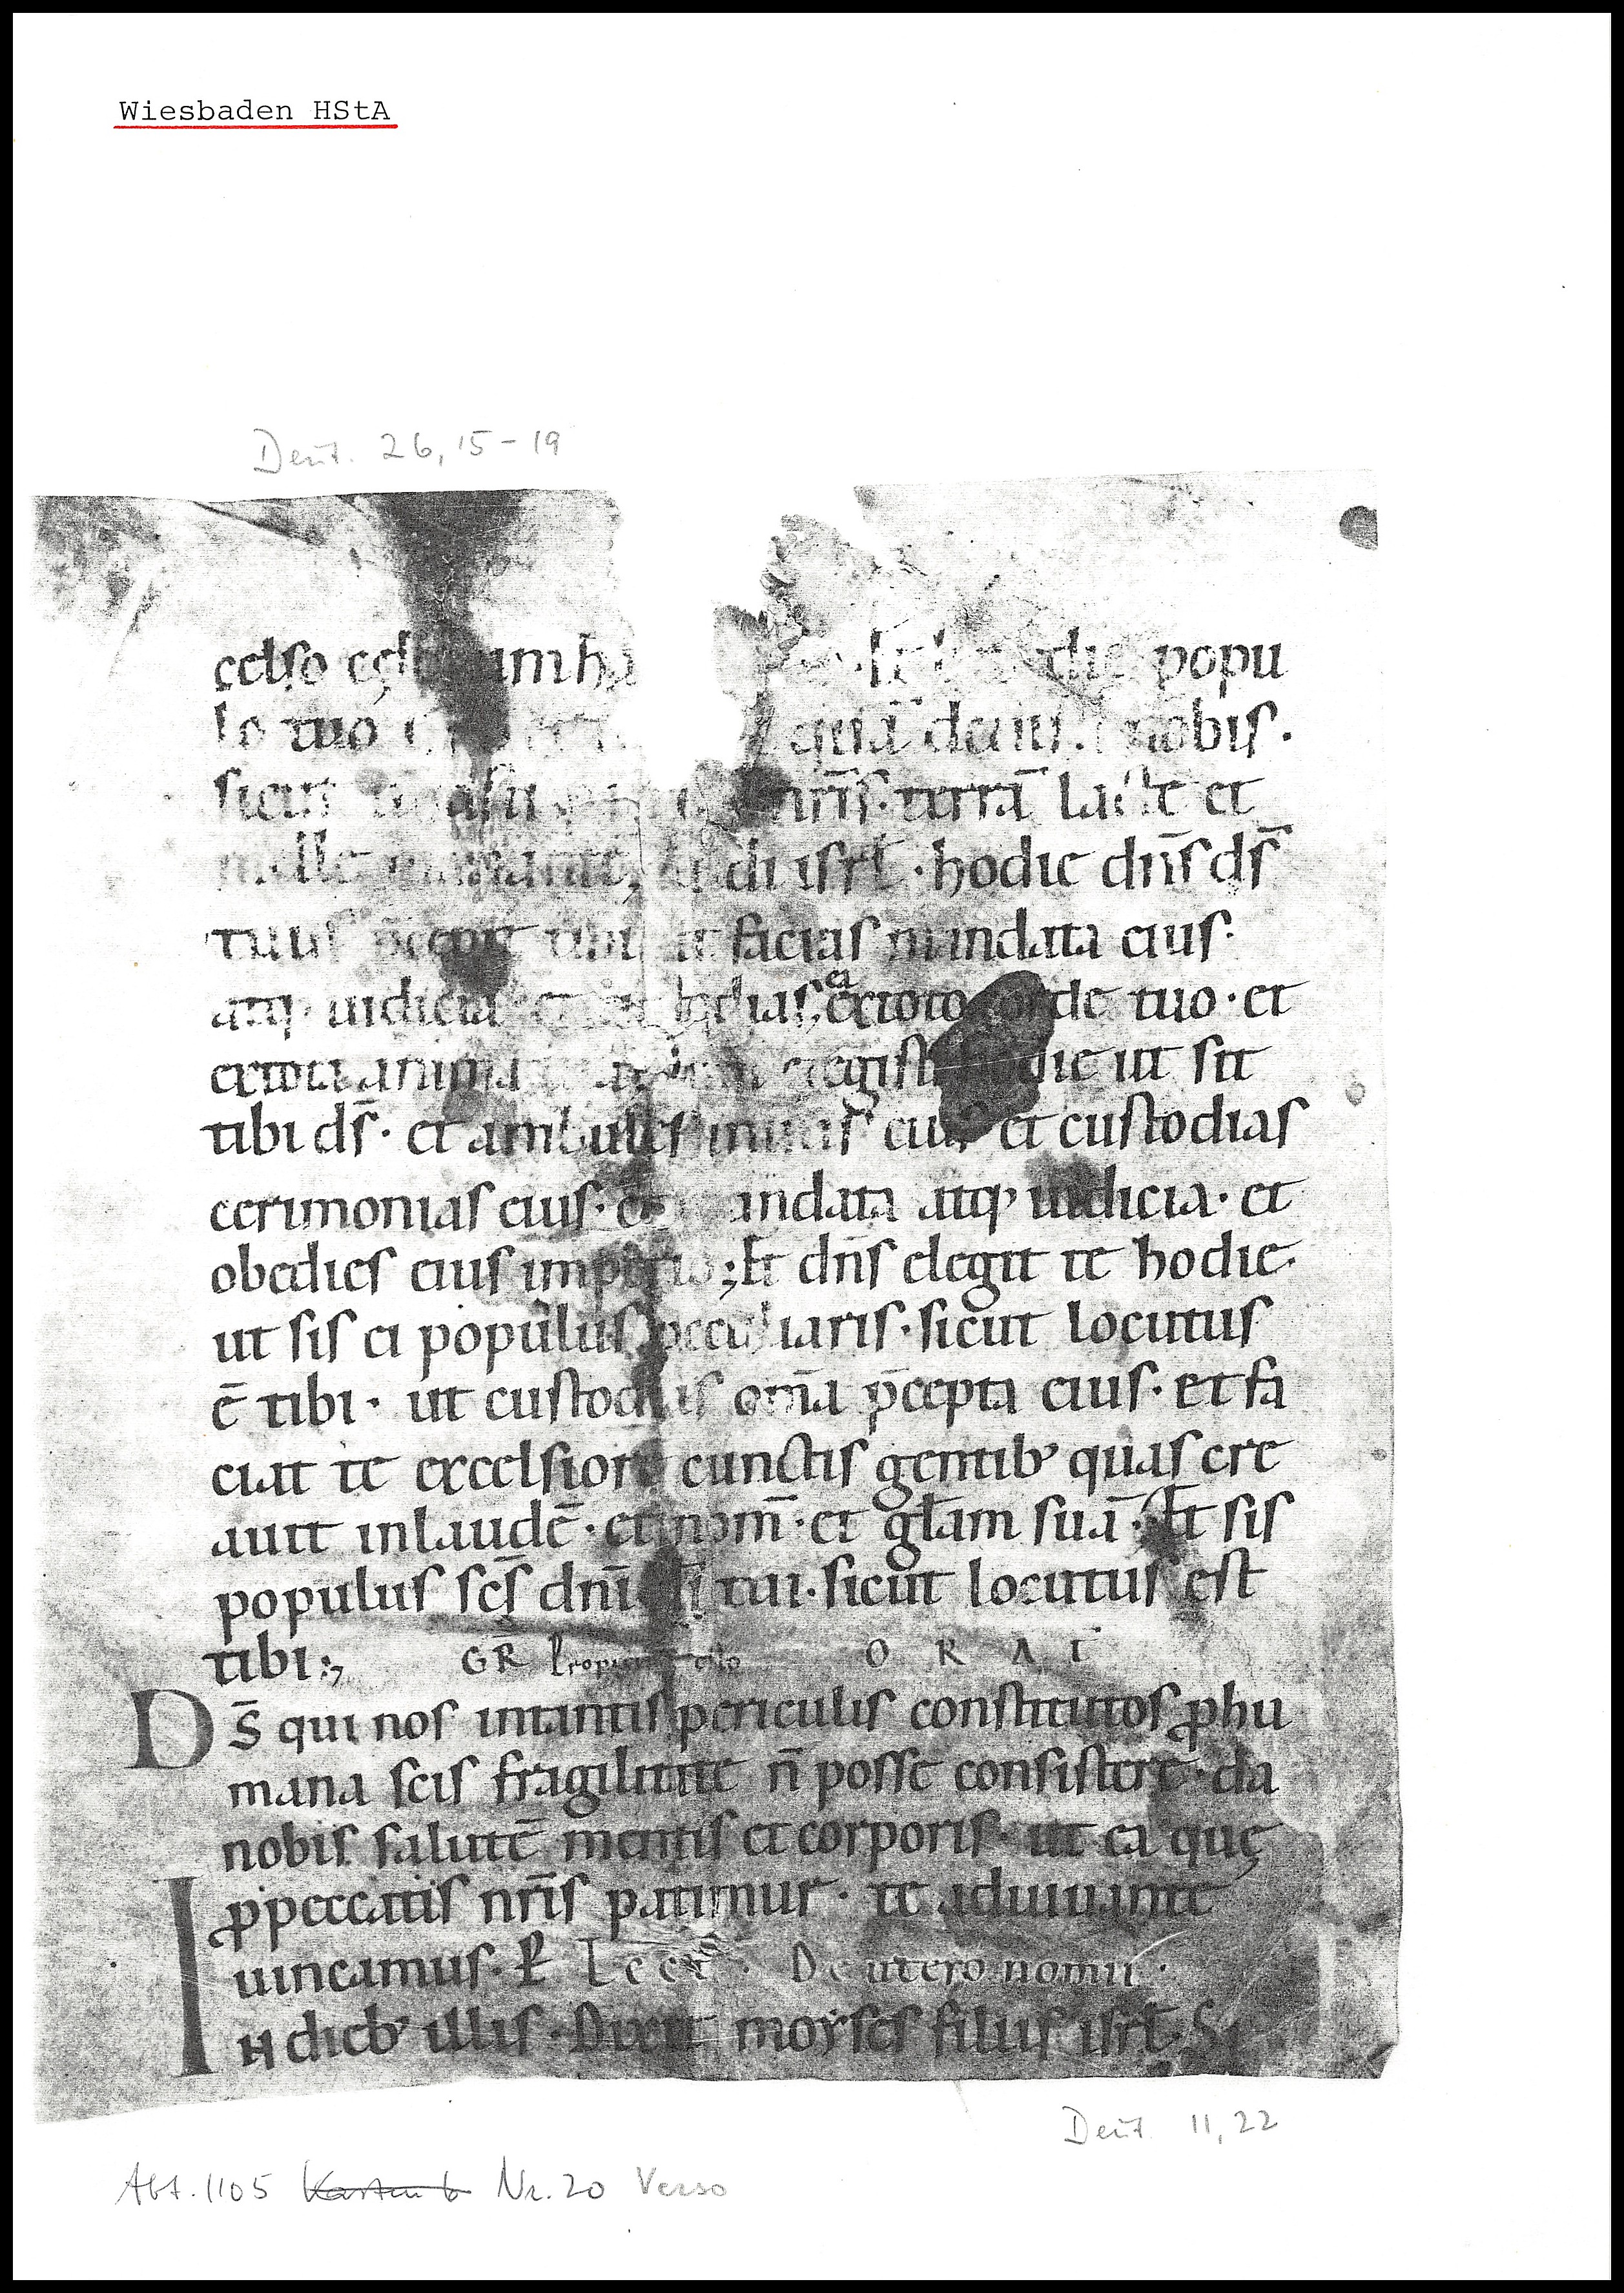 Wiesbaden HStA
Deut. 26, 15-19
popu
lo tuo quā nobis.
sicut nr̄is. terrā lacte et
isrł. hodie dn̄s ds̄
tuus p̄cepit tibi ut facias mandata eius.
atq; iudicia ea extoto corde tuo. et
extota anima elegisti hodie ut sit
tibi ds̄. et ambules inuiis eius et custodias
cerimonias eius. et mandata atq; iudicia. et
obedies eius imperio; Et dn̄s elegit te hodie.
ut sis ei populus peculiaris. sicut locutus
ē tibi. ut custodias om̄a p̄cepta eius. et fa
ciat te excelsiorē cunctis gentib; quas cre
auit inlaudē. et nom̄. et gl̄am suā. Et sis
populus sc̄s dn̄i dī tui. sicut locutus est
tibi;, GR Propicius esto ORAT
Ds̄ qui nos intantis periculis constitutos ꝓhu
mana scis fragilitate n̄ posse consistere. da
nobis salutē mentis et corporis. ut ea quę
ꝓpeccatis nr̄is patimur. te adiuuante
uincamus. P̄ Lect. Deuteronomii.
IN dieb; illis. Dixit moyses filiis isrł. Si
Deut. 11, 22
Abt. 1105 Karton 6 Nr. 20 Verso